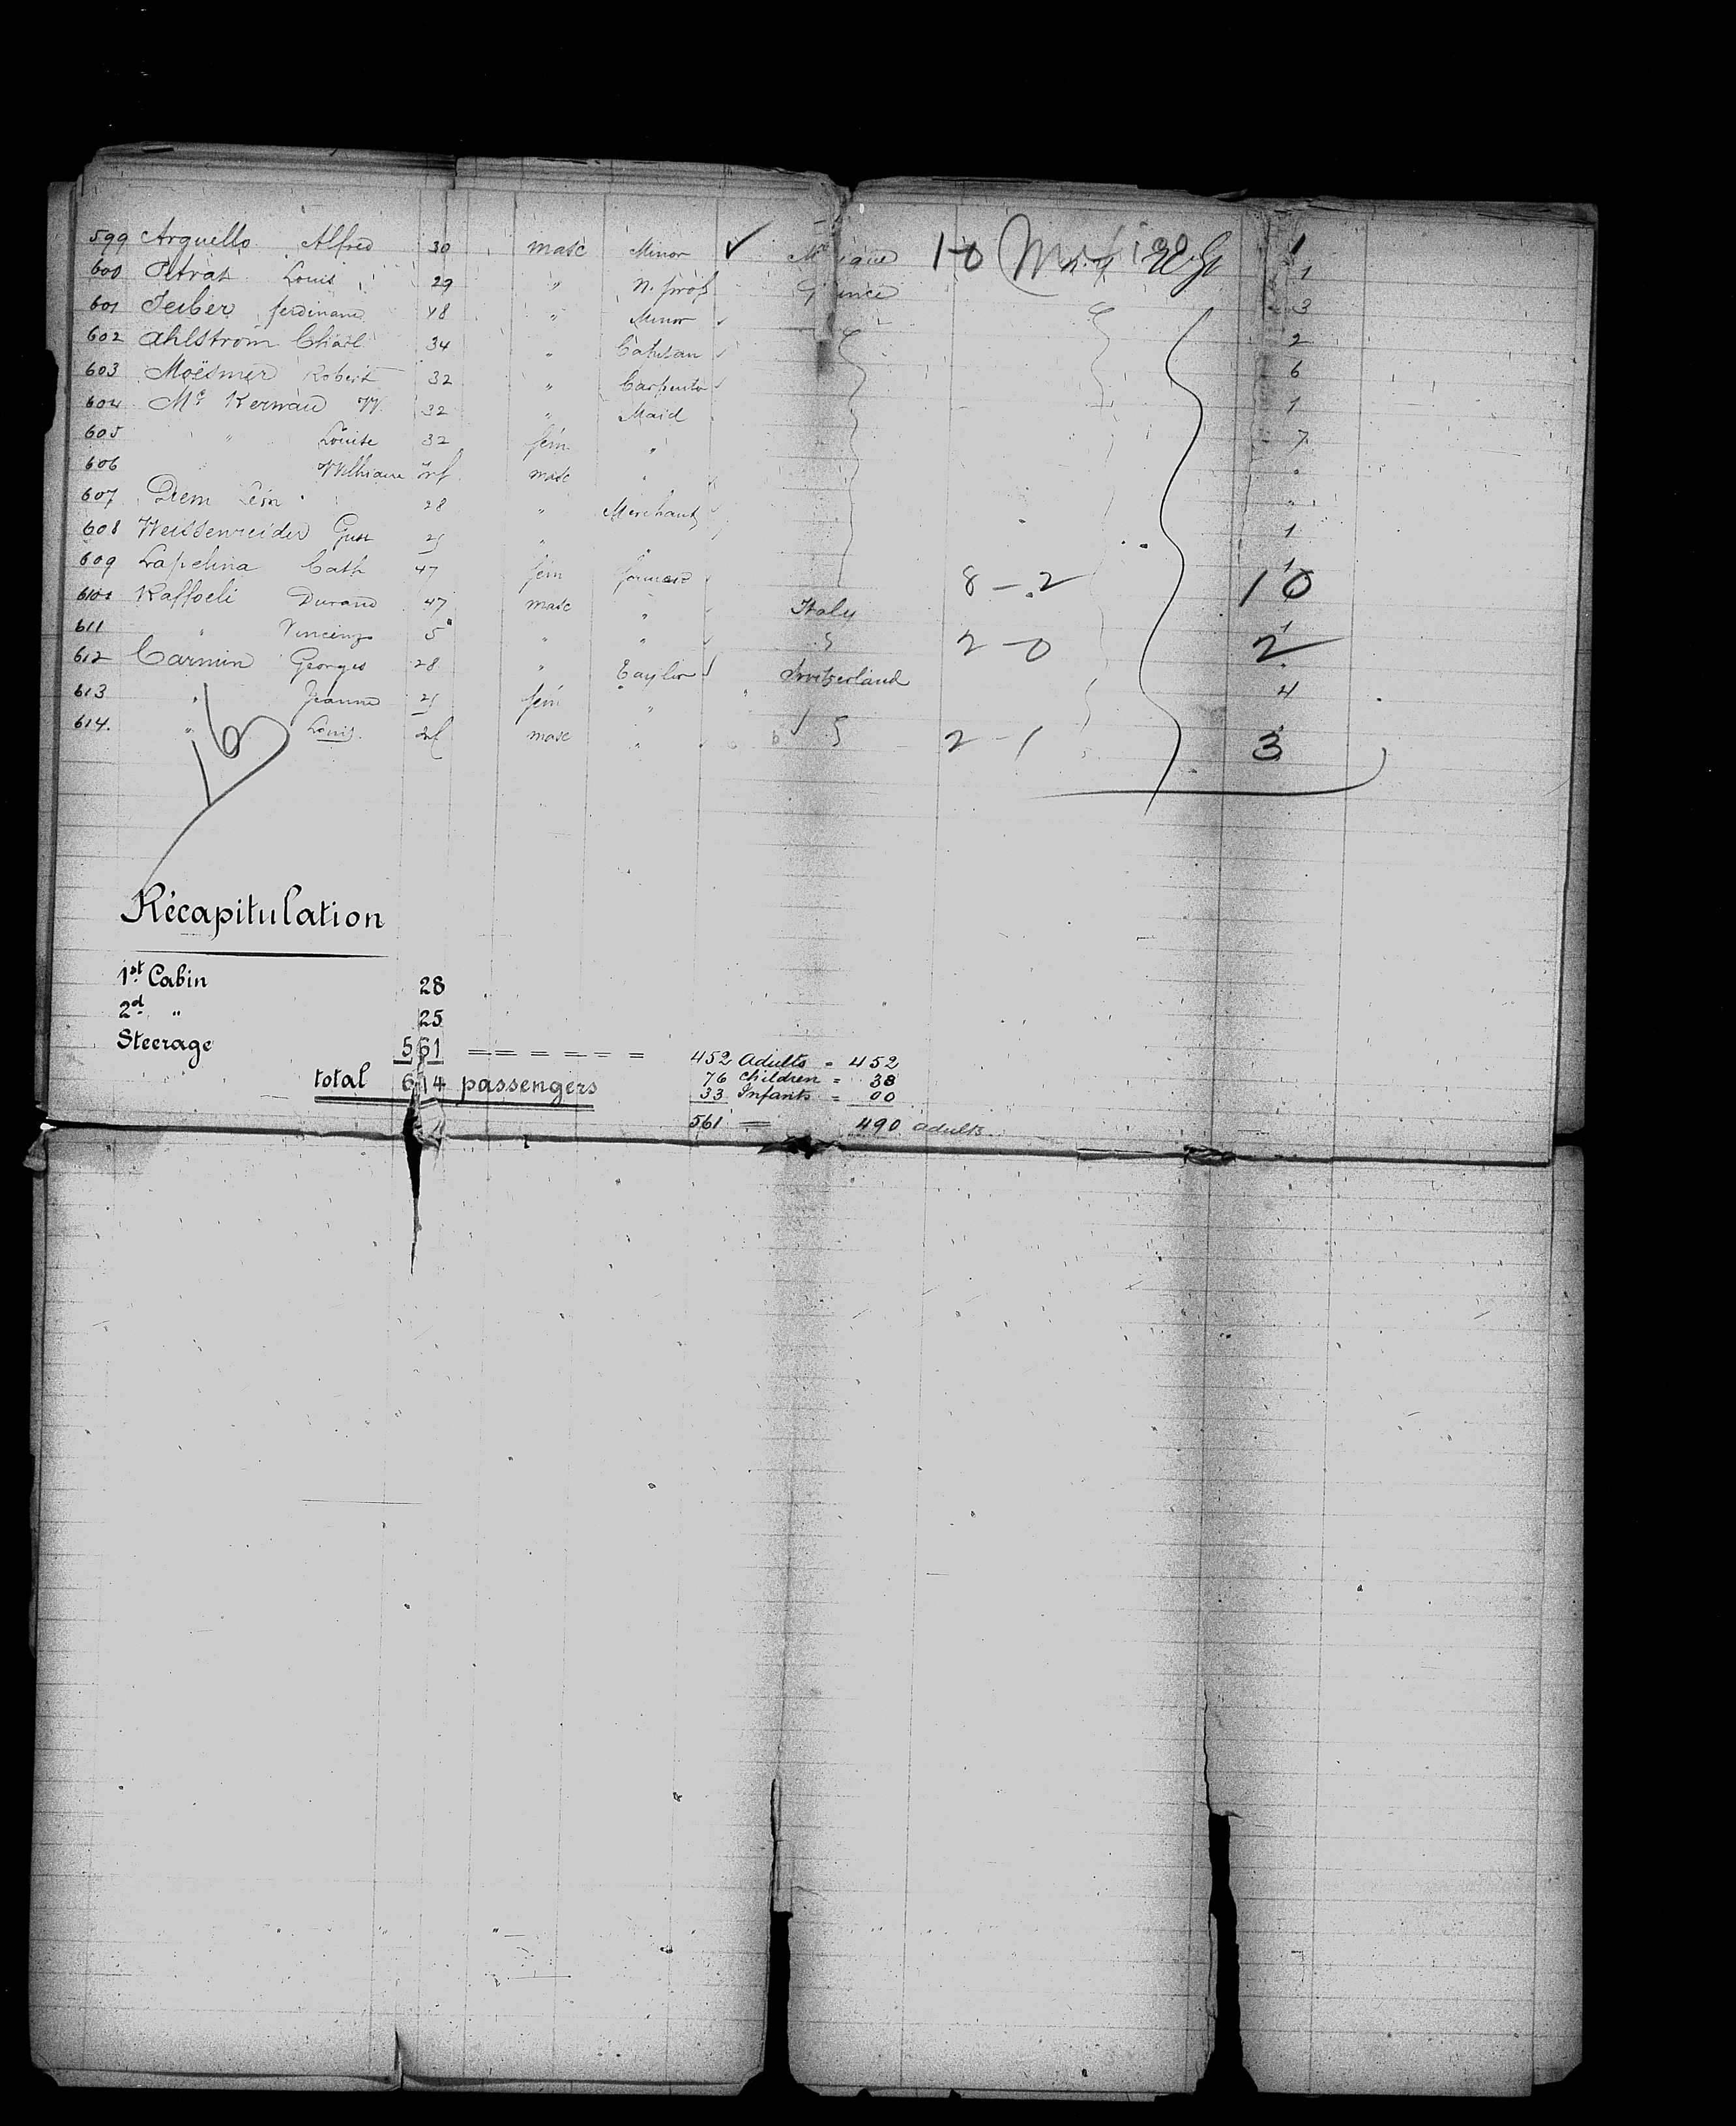 599 Arguello Alfred 30 masc Minor ✓ 1-0 1
600 Petras Louis 29 " N. prof 1
601 Teiber ferdinand 48 " Minor 3
602 Ahlstrom Charl 34 " Capitan 2
603 Moësmer Robert 32 " Carpenter 6
604 Mc Kerwan W. 32 " Maid 1
605 " Louise 32 fém " 7
606 " Williams Inf masc "
607 Diem Léon 28 " Merchant "
608 Weissenreider Gust 25 " 1
609 Lapelina Cath 47 fém farmer 8-2 10
610 Raffoeli Durand 47 masc " Italy 1
611 " Vincenzo 5 " " 2-0 2
612 Carmin Georges 28 " Taylor Switzerland
613 " Jeanne 25 fém " 4
614. " Louis. Inf masc " 2-1 3
16
Récapitulation
1st Cabin 28
2d " 25
Steerage 561 = = = = = = 452 Adults = 452
76 Children = 38
total 614 passengers
33 Infants = 00
561 = 490 adults